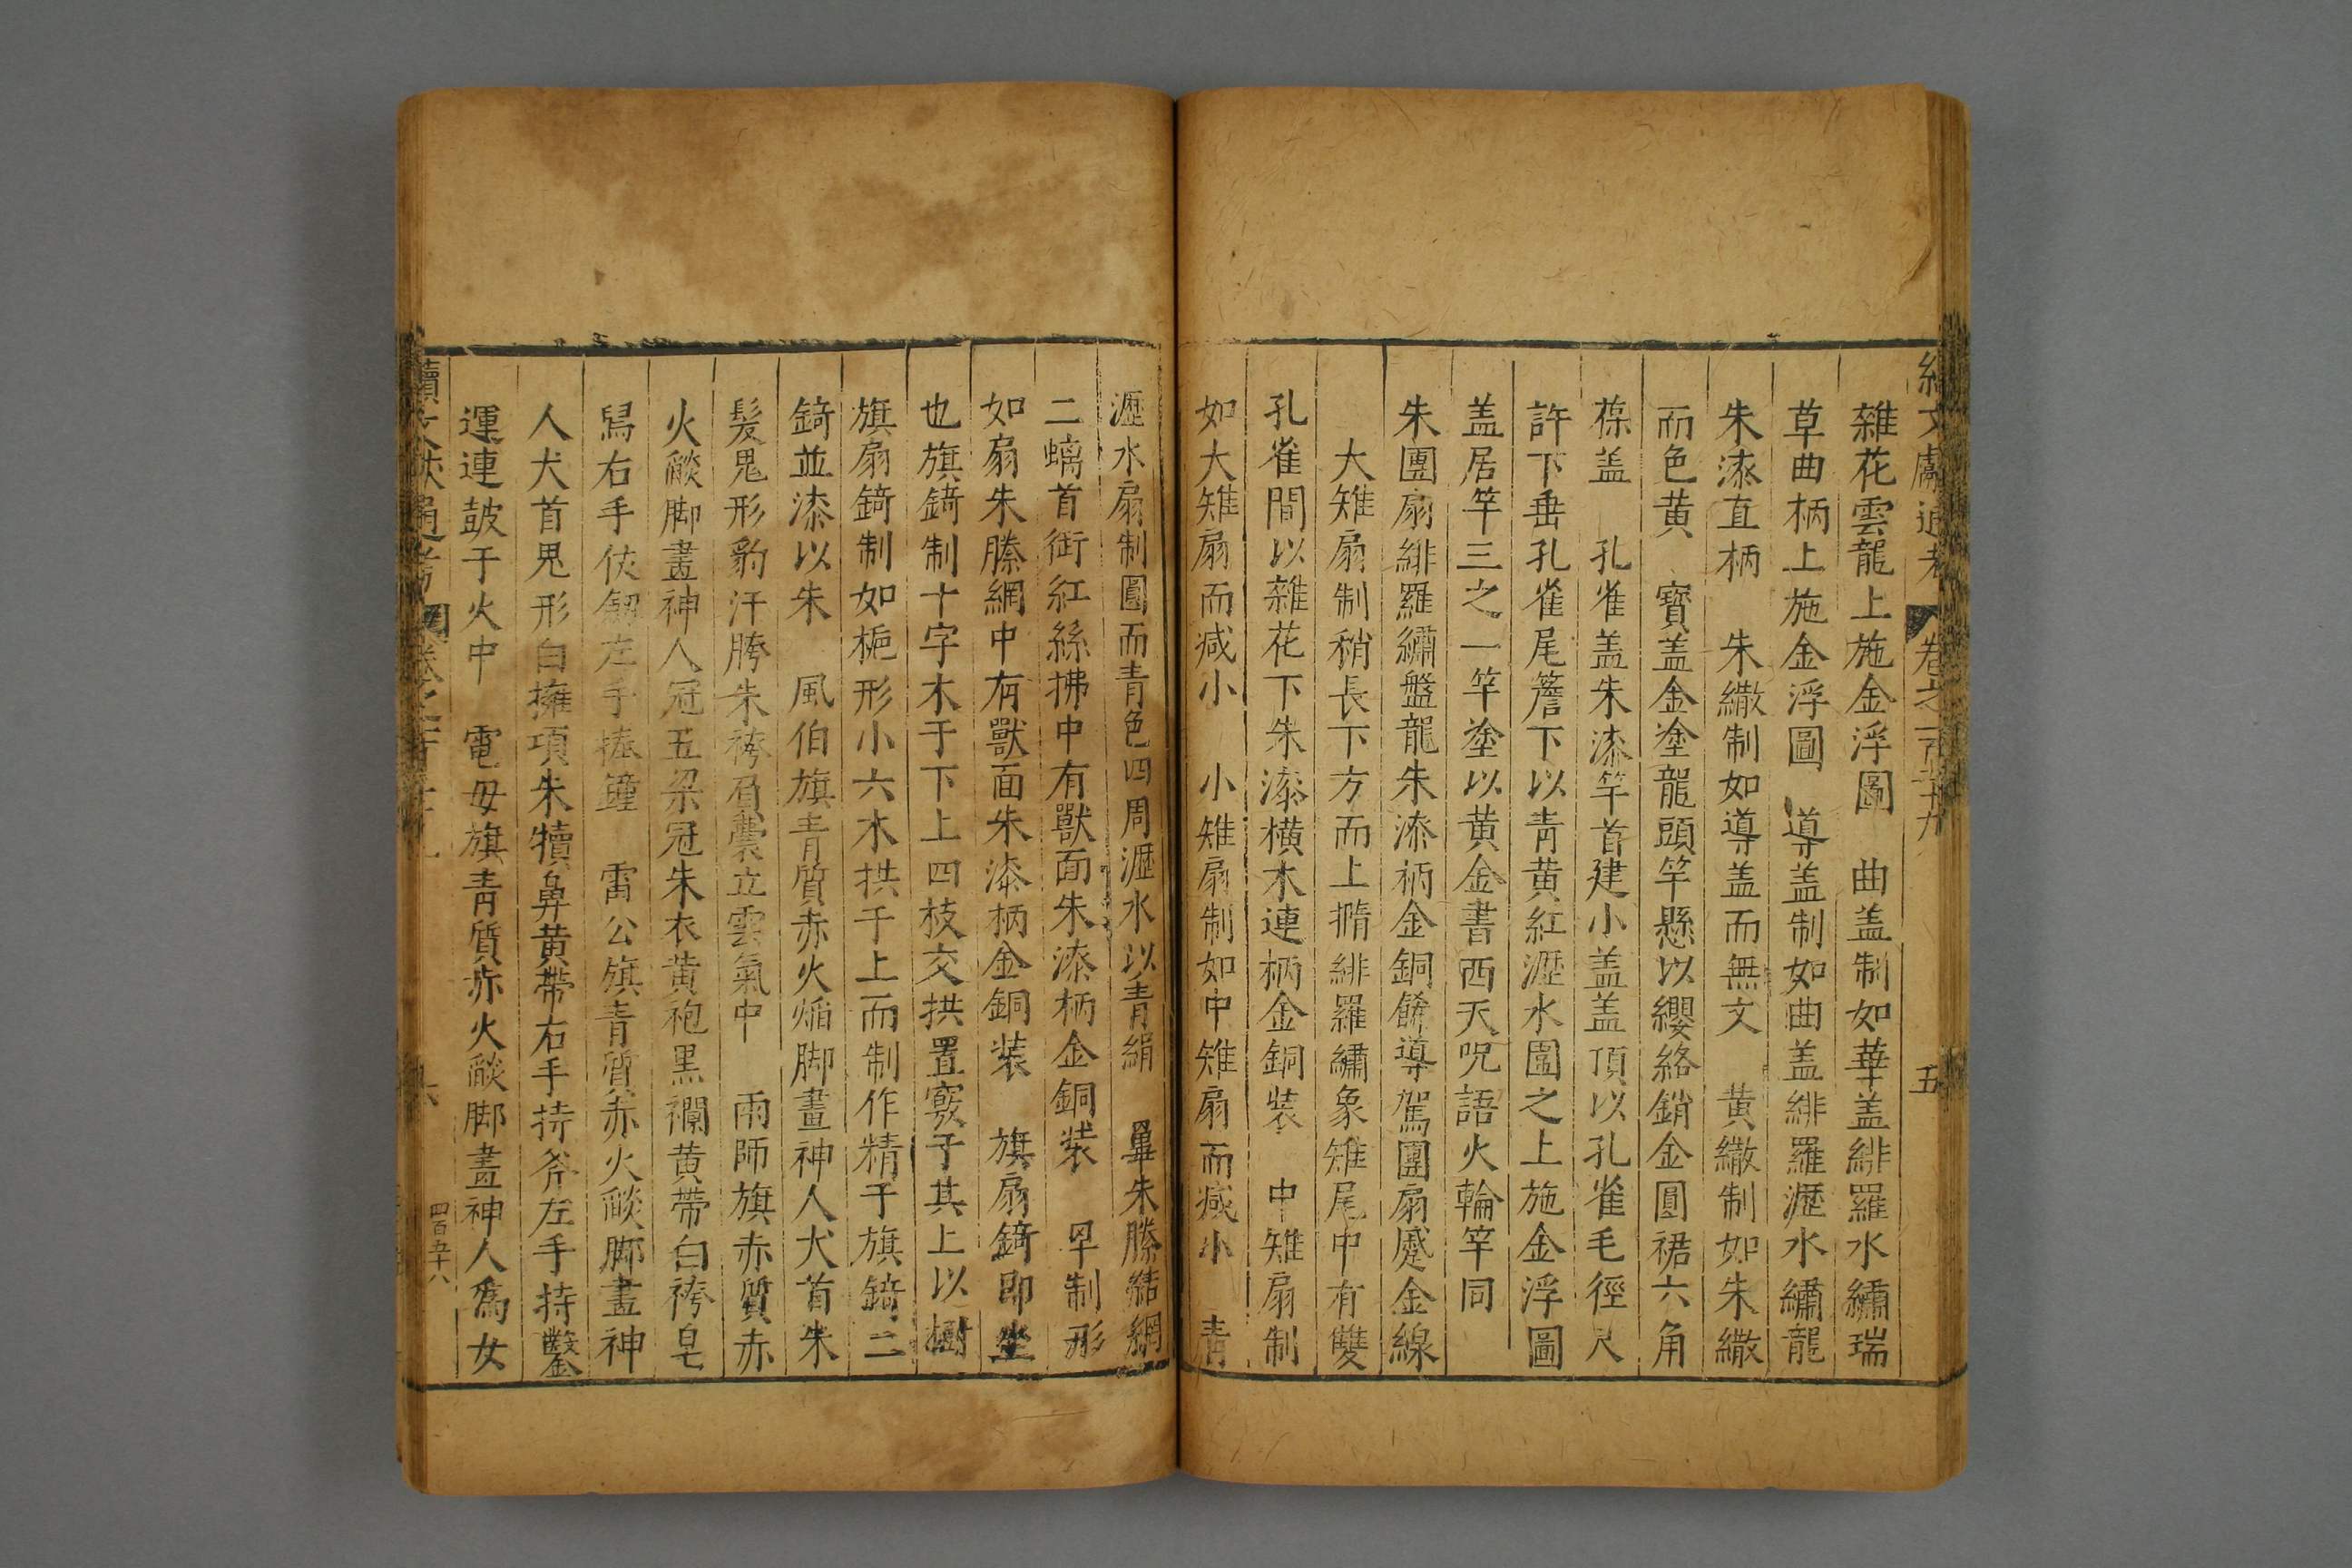 續文獻通考 卷之一百二十九 五
雜花雲龍上施金浮圖 曲盖制如華盖緋羅水繡瑞
草曲柄上施金浮圖 導盖制如曲盖緋羅瀝水繡龍
朱漆直柄 朱繖制如導盖而無文 黄繖制如朱繖
而色黄 寶盖金塗龍頭竿懸以纓絡銷金圓裙六角
葆盖 孔雀盖朱漆竿首建小盖盖頂以孔雀毛徑尺
許下垂孔雀尾簷下以青黄紅瀝水圍之上施金浮圖
盖居竿三之一竿塗以黄金書西天呪語火輪竿同
朱團扇緋羅繡盤龍朱漆柄金銅餙導駕團扇蹙金線
大雉扇制稍長下方而上撱緋羅繡象雉尾中有雙
孔雀間以雜花下朱漆横木連柄金銅装 中雉扇制
如大雉扇而减小 小雉扇制如中雉扇而减小 青
瀝水扇制圓而青色四周瀝水以青絹 罼朱縢結網
二螭首衘紅絲拂中有獸面朱漆柄金銅装 罕制形
如扇朱縢網中有獸面朱漆柄金銅装 旗扇錡即坐
也旗錡制十字木于下上四枝交拱置竅于其上以樹
旗扇錡制如梔形小六木拱于上而制作精于旗錡二
錡並漆以朱 風伯旗青質赤火焔脚畫神人犬首朱
髮鬼形豹汗胯朱袴負囊立雲氣中 雨師旗赤質赤
火燄脚畫神人冠五梁冠朱衣黄袍黑襴黄帶白袴皂
舄右手仗劒左手捧鐘 雷公旗青質赤火燄脚畫神
人犬首鬼形白擁項朱犢鼻黄帶右手持斧左手持鑿
運連鼓于火中 電母旗青質赤火燄脚畫神人爲女
續文獻通考 卷之一百二十九 六 四百五十八